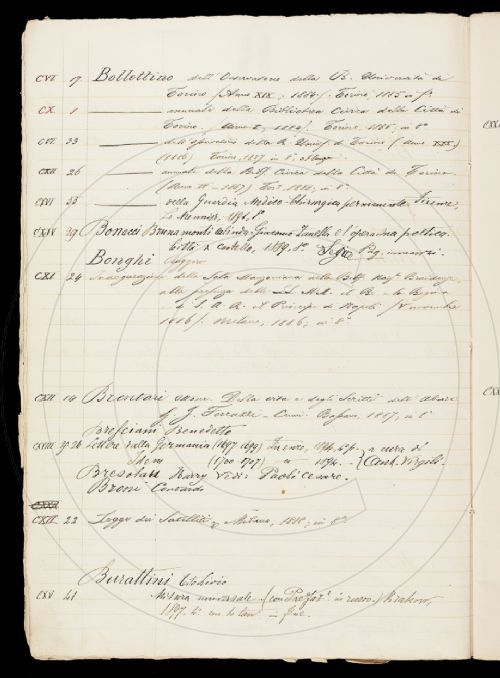 CVI 17 Bollettino dell'Osservatorio della R. Università di
Torino (Anno XIX, 1884). Torino, 1885 in f.
CX. 1 annuale della Biblioteca Civica della Città di
Torino (Anno 1884). Torino, 1885, in 8°
CVI 33 dell'Osservatorio della R. Univ. di Torino (Anno XXI)
(1886) Torino, 1887 in 8°
CXII 26 annuale della Bibl. Civica della Città di Torino.
1887) Tor. 1888, in 8°.
XVI 33 della Guardia Medico-Chirurgica permanente. Firenze,
Le Monnier, 8°
CXIV 29 Bonacci Brunamonti Alinda, Giacomo Zanella e l'opera sua poetica.
Città di Castello, 1889, 8°. Segue Pag.
Bonghi Ruggero
CXI 24 Inaugurazione della Sala Manzoniana alla Bibl. Naz. Braidense,
alla presenza delle LL. M.M. il Re e la Regina
e di S. A. R. il Principe di Napoli (novembre
1886). Milano, 1886; in 8°
CXII 18 Brentari Ottone. Della vita e degli scritti dell'Abate
J. J. Ferrazzi - Cenni. Bassano, 1887, in 8°
Bresciani Benedetto
CXIII 25 26 Lettere dalla Germania (1697 1699) Firenze, 1894 a cura di
Idem (1700 1717) 1894. (Cent. Virgili.
Bresslau Harry Vedi: Paoli Cesare.
Broni Corrado
CXII. 22 Legge dei Satelliti, Milano, in 8°.
Burattini Tito Livio
CXV 41 Misura universale (con Prefaz. in russo.) Krakow,
1897. 4° con tav. in fine.